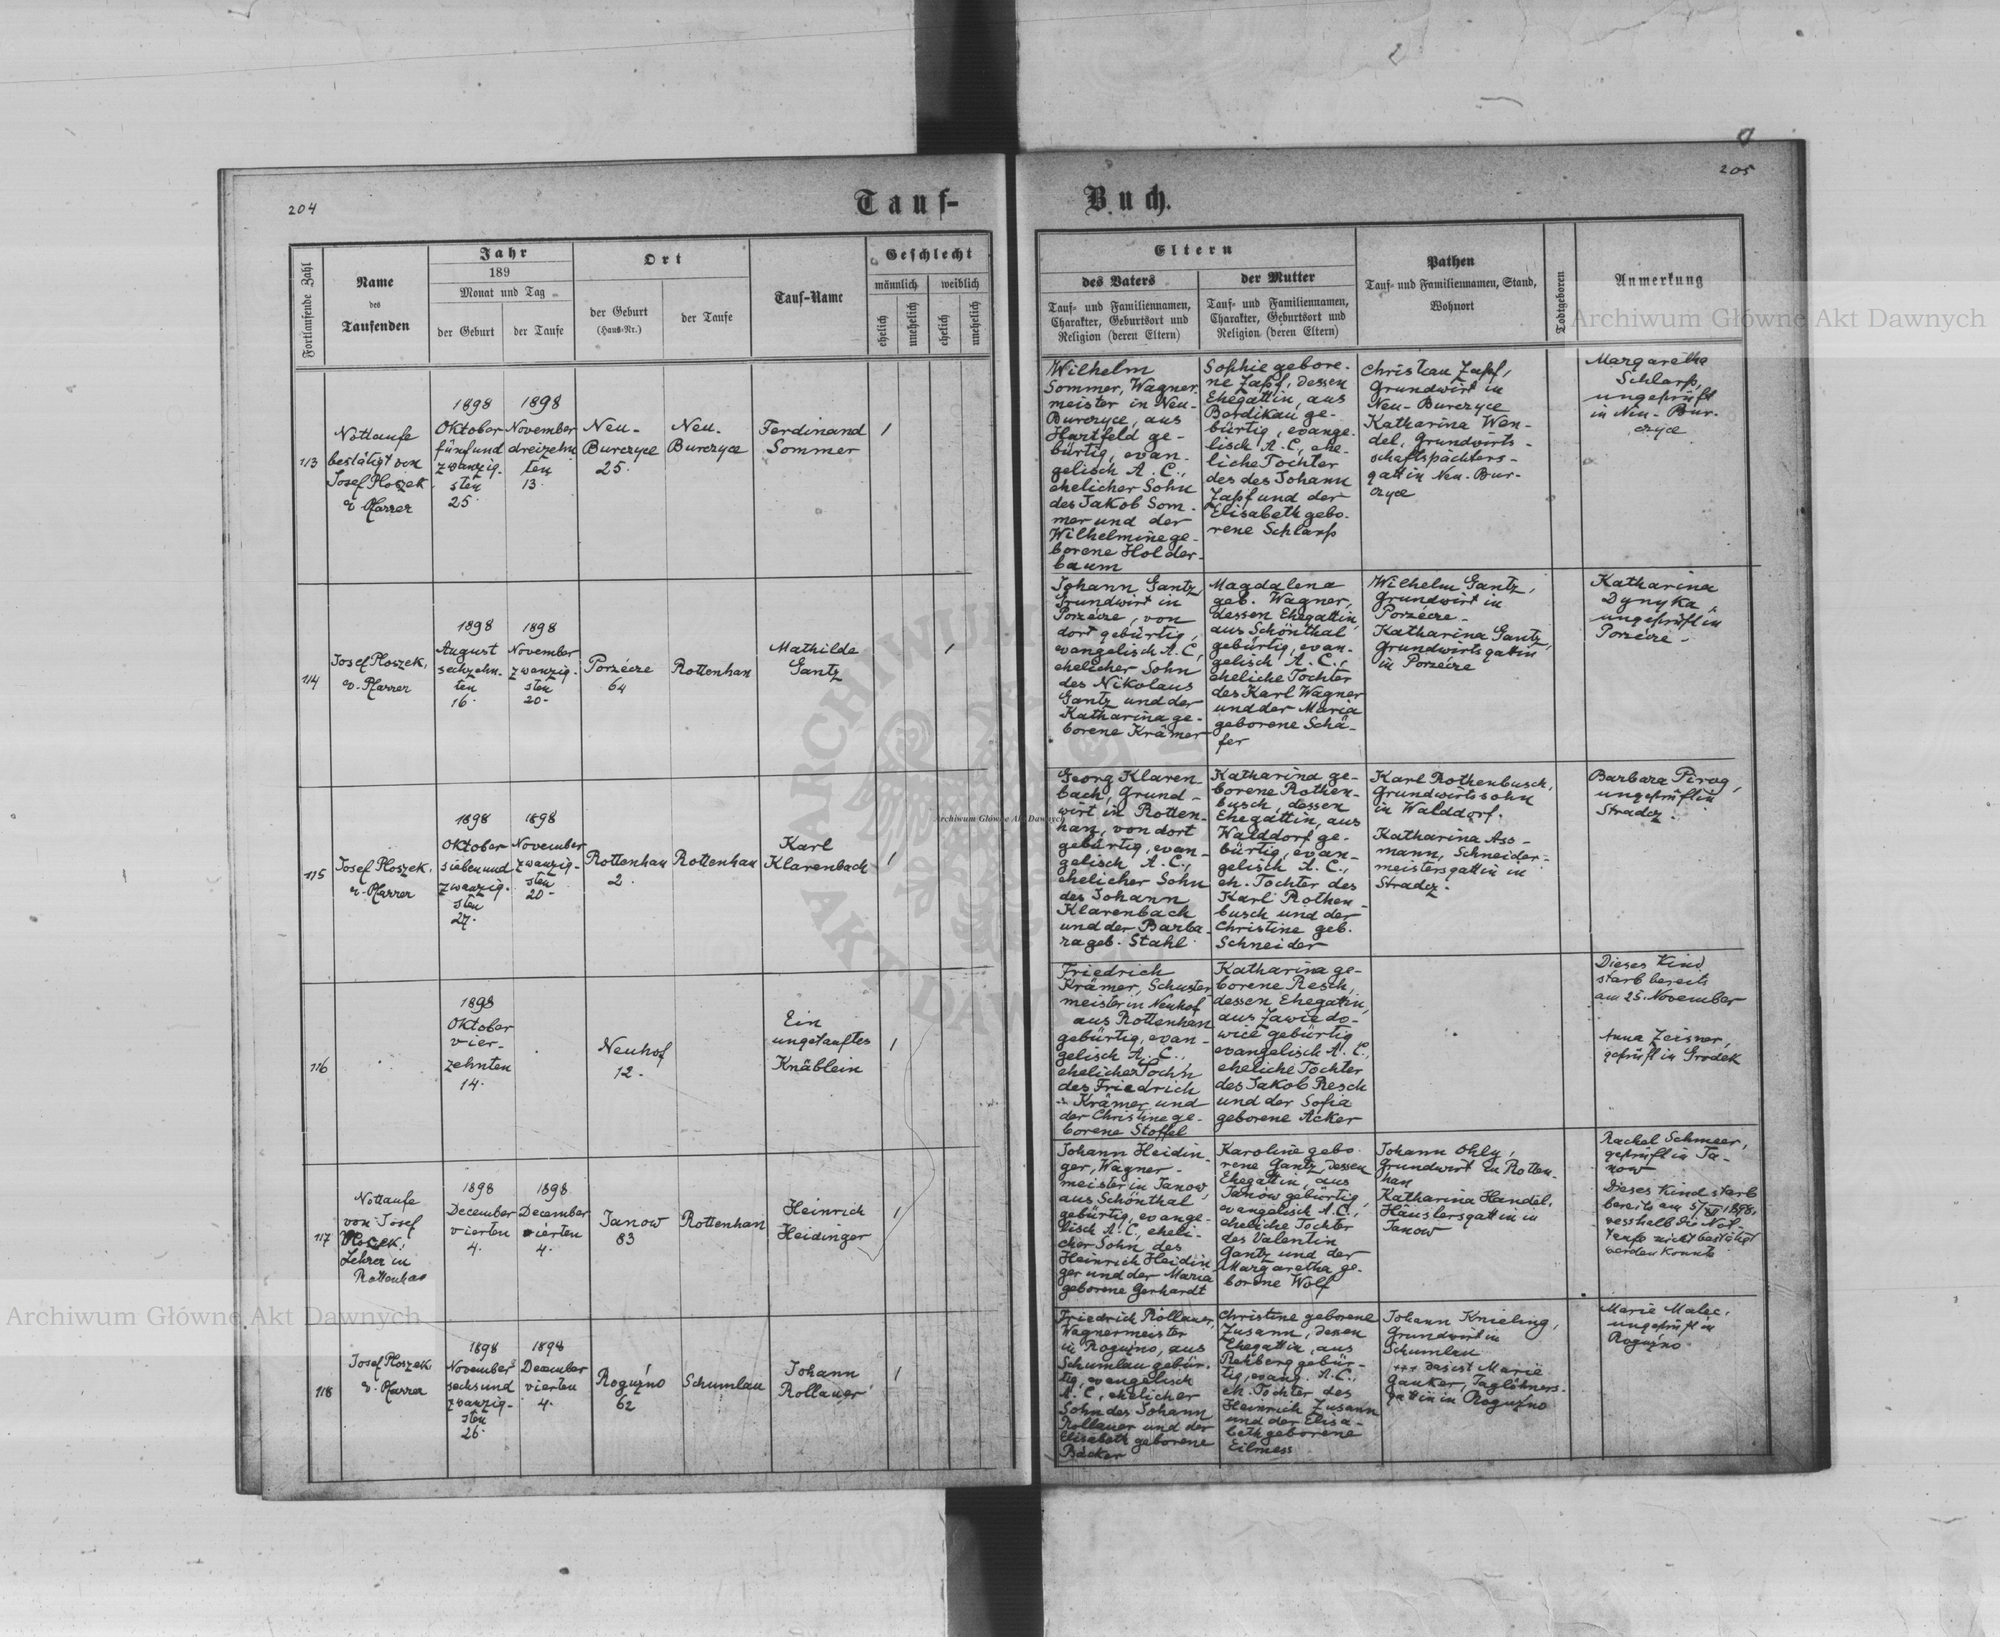 204
Tauf-
Buch.
205
Fortlaufende Zahl
Name
des
Taufenden
Jahr
189
Monat und Tag
der Geburt
der Taufe
Ort
der Geburt
(Haus-Nr.)
der Taufe
Tauf-Name
Geschlecht
männlich
weiblich
ehelich
unehelich
ehelich
unehelich
Eltern
des Vaters
Tauf- und Familiennamen,
Charakter, Geburtsort und
Religion (deren Eltern)
der Mutter
Tauf- und Familiennamen,
Charakter, Geburtsort und
Religion (deren Eltern)
Pathen
Tauf- und Familiennamen, Stand,
Wohnort
Todtgeboren
Anmerkung
113
Nottaufe
bestätigt von
Josef Ploszek
Pfarrer
1898
Oktober
fünfund
zwanzig-
sten
25.
1898
November
dreizehn
ten
13.
Neu-
Burczyce
25.
Neu-
Burczyce
Ferdinand
Sommer
1
Wilhelm
Sommer, Wagner
meister in Neu-
Burczyce, aus
Hartfeld ge-
bürtig, evan-
gelisch A.C.,
ehelicher Sohn
des Jakob Som-
mer und der
Wilhelmine ge-
borene Holder-
baum
Sophie gebore-
ne Zapf, dessen
Ehegattin, aus
Bardikau ge-
bürtig, evange-
lisch A.C., ehe-
liche Tochter
des des Johann
Zapf und der
Elisabeth gebo-
rene Schlarp
Christian Zapf,
Grundwirt in
Neu-Burczyce
Katharina Wen-
del, Grundwirts-
schaftspächters-
gattin Neu-Bur-
czyce
Margaretha
Schlarp,
ungeprüft
in Neu-Bur-
czyce
114
Josef Ploszek,
Pfarrer
1898
August
sechzehn-
ten
16.
1898
November
zwanzig-
sten
20.
Porzécze
64
Rottenhan
Mathilde
Gantz
1
Johann Gantz,
Grundwirt in
Porzécze, von
dort gebürtig,
evangelisch A.C.,
ehelicher Sohn
des Nikolaus
Gantz und der
Katharina ge-
borene Krämer
Magdalena
geb. Wagner,
dessen Ehegattin,
aus Schönthal
gebürtig, evan-
gelisch A.C.,
eheliche Tochter
des Karl Wagner
und der Maria
geborene Schä-
fer
Wilhelm Gantz,
Grundwirt in
Porzécze -
Katharina Gantz,
Grundwirtsgattin
in Porzécze
Katharina
Dynyka,
ungeprüft in
Porzecze -
115
Josef Ploszek,
Pfarrer
1898
Oktober
siebenund
zwanzig-
sten
27.
1898
November
zwanzig-
sten
20.
Rottenhan
2.
Rottenhan
Karl
Klarenbach
1
Georg Klaren
bach, Grund-
wirt in Rotten-
han, von dort
gebürtig, evan-
gelisch A.C.,
ehelicher Sohn
des Johann
Klarenbach
und der Barba-
ra geb. Stahl
Katharina ge-
borene Rothen-
busch, dessen
Ehegattin, aus
Walddorf ge-
bürtig, evan-
gelisch A.C.,
eh. Tochter des
Karl Rothen-
busch und der
Christine geb.
Schneider
Karl Rothenbusch,
Grundwirtssohn
in Walddorf.
Katharina Ass-
mann, Schneider-
meistersgattin in
Stradcz.
Barbara Pirog,
ungeprüft in
Stradcz.
116
1898
Oktober
vier-
zehnten
14.
Neuhof
12.
Ein
ungetauftes
Knäblein
1
Friedrich
Krämer, Schuster
meister in Neuhof
aus Rottenhan
gebürtig, evan-
gelisch A.C.,
ehelicher Sohn
des Friedrich
Krämer und
der Christine ge-
borene Stoffel
Katharina ge-
borene Resch,
dessen Ehegattin,
aus Zawido-
wice gebürtig
evangelisch A.C.,
eheliche Tochter
des Jakob Resch
und der Sofia
geborene Acker
Dieses Kind
starb bereits
am 25. November
Anna Zeisner,
geprüft in Grodek
117
Nottaufe
von Josef
Ploszek,
Lehrer in
Rottenhan
1898
December
vierten
4.
1898
December
vierten
4.
Janow
83
Rottenhan
Heinrich
Heidinger
1
Johann Heidin-
ger, Wagner-
meister in Janow,
aus Schönthal
gebürtig, evange-
lisch A.C., eheli-
cher Sohn des
Heinrich Heidin
ger und der Maria
geborene Gerhardt
Karoline gebo-
rene Gantz, dessen
Ehegattin, aus
Janow gebürtig,
evangelisch A.C.,
eheliche Tochter
des Valentin
Gantz und der
Margaretha ge-
borene Wolf
Johann Ohly,
Grundwirt in Rotten-
han
Katharina Handel,
Häuslersgattin in
Janow
Rachel Schmeer,
geprüft in Ja-
now
Dieses Kind starb
bereits am 5/XII 1898,
wesshalb die Not-
taufe nicht bestätigt
werden konnte
118
Josef Ploszek
Pfarrer
1898
November
sechsund
zwanzig-
sten
26.
1898
December
vierten
4.
Roguźno
62
Schumlau
Johann
Rollauer
1
Friedrich Rollauer,
Wagnermeister
in Roguźno, aus
Schumlau gebür-
tig, evangelisch
A.C., ehelicher
Sohn des Johann
Rollauer und der
Elisabeth geborene
Bäcker
Christine geborene
Zusann, dessen
Ehegattin, aus
Rehberg gebür-
tig, evang. A.C.,
eh. Tochter des
Heinrich Zusann
und der Elisa-
beth geborene
Eilmess
Johann Knieling,
Grundwirt in
Schumlau
+++ das ist Marie
Gauker, Taglöhners-
gattin in Roguźno
Marie Malec,
ungeprüft in
Roguźno
Archiwum Główne Akt Dawnych
Archiwum Główne Akt Dawnych
Archiwum Główne Akt Dawnych
ARCHIWUM
AKT DAWNYCH